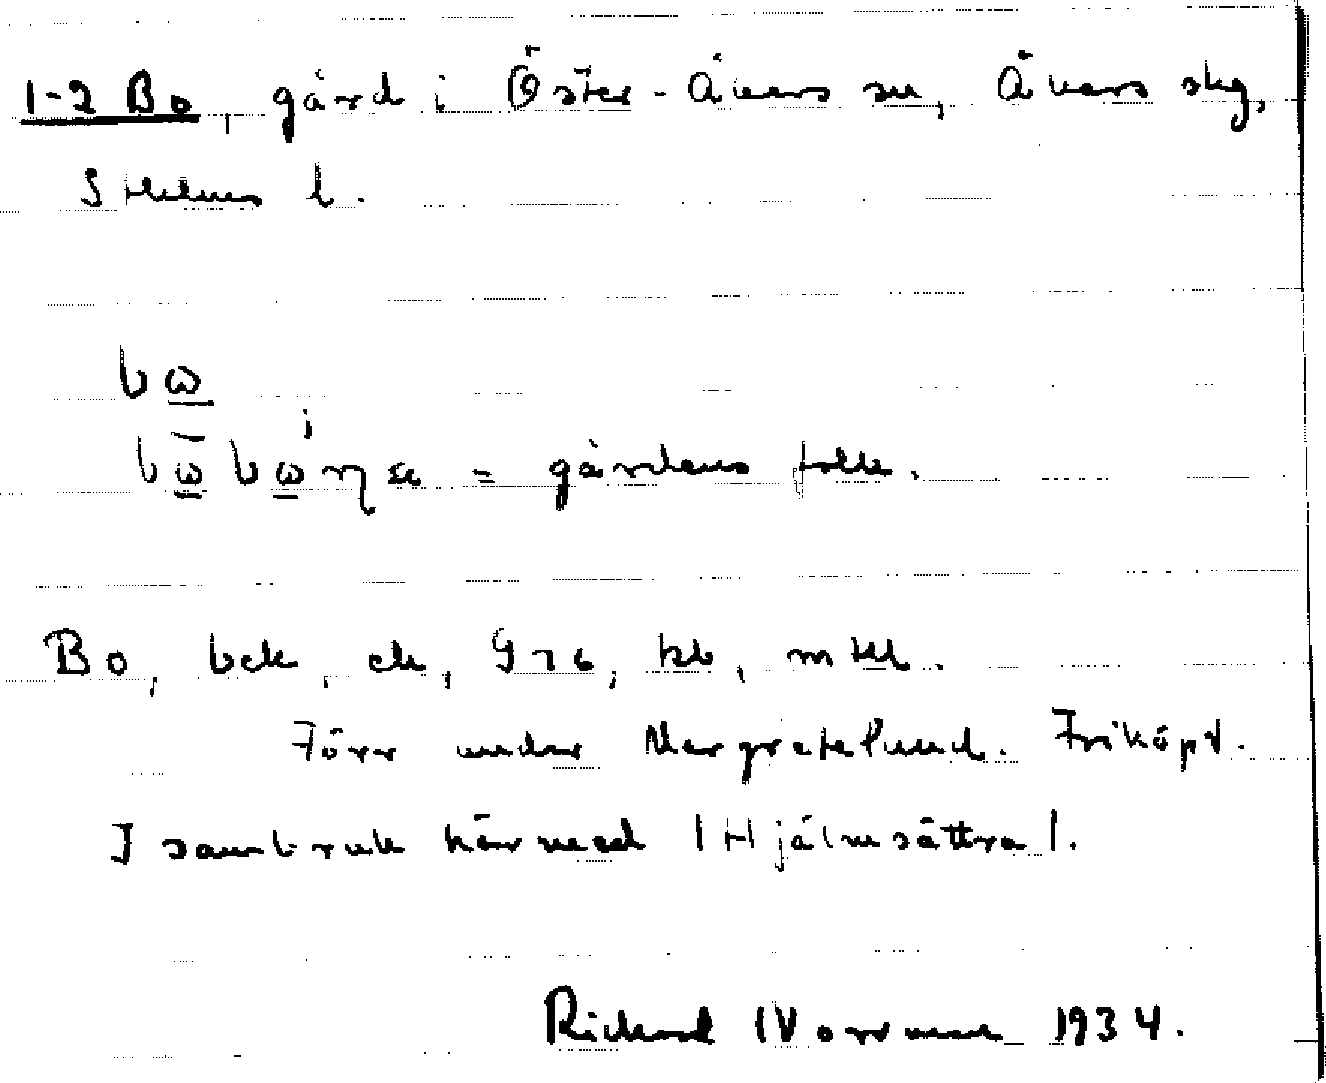 1-2 Bo, gård i Öster-Åkers sn, Åkers skg,
Sthlms l.
bω
bω̄bωηα = gårdens folk.
Bo, bck, ck, G76, kb, mtll.
Förr under Margretelund. Friköpt.
I sambruk härmed |Hjälmsättra|.
Richard Norrman 1934.